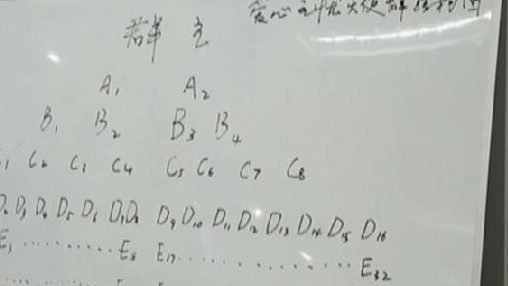 爱心无忧天使群结构图
群主
A₁ A₂
B₁ B₂ B₃ B₄
C₁ C₂ C₃ C₄ C₅ C₆ C₇ C₈
D₂ D₃ D₄ D₅ D₆ D₇ D₈ D₉ D₁₀ D₁₁ D₁₂ D₁₃ D₁₄ D₁₅ D₁₆
E₁ ········· E₈ E₁₇ ·············· E₃₂